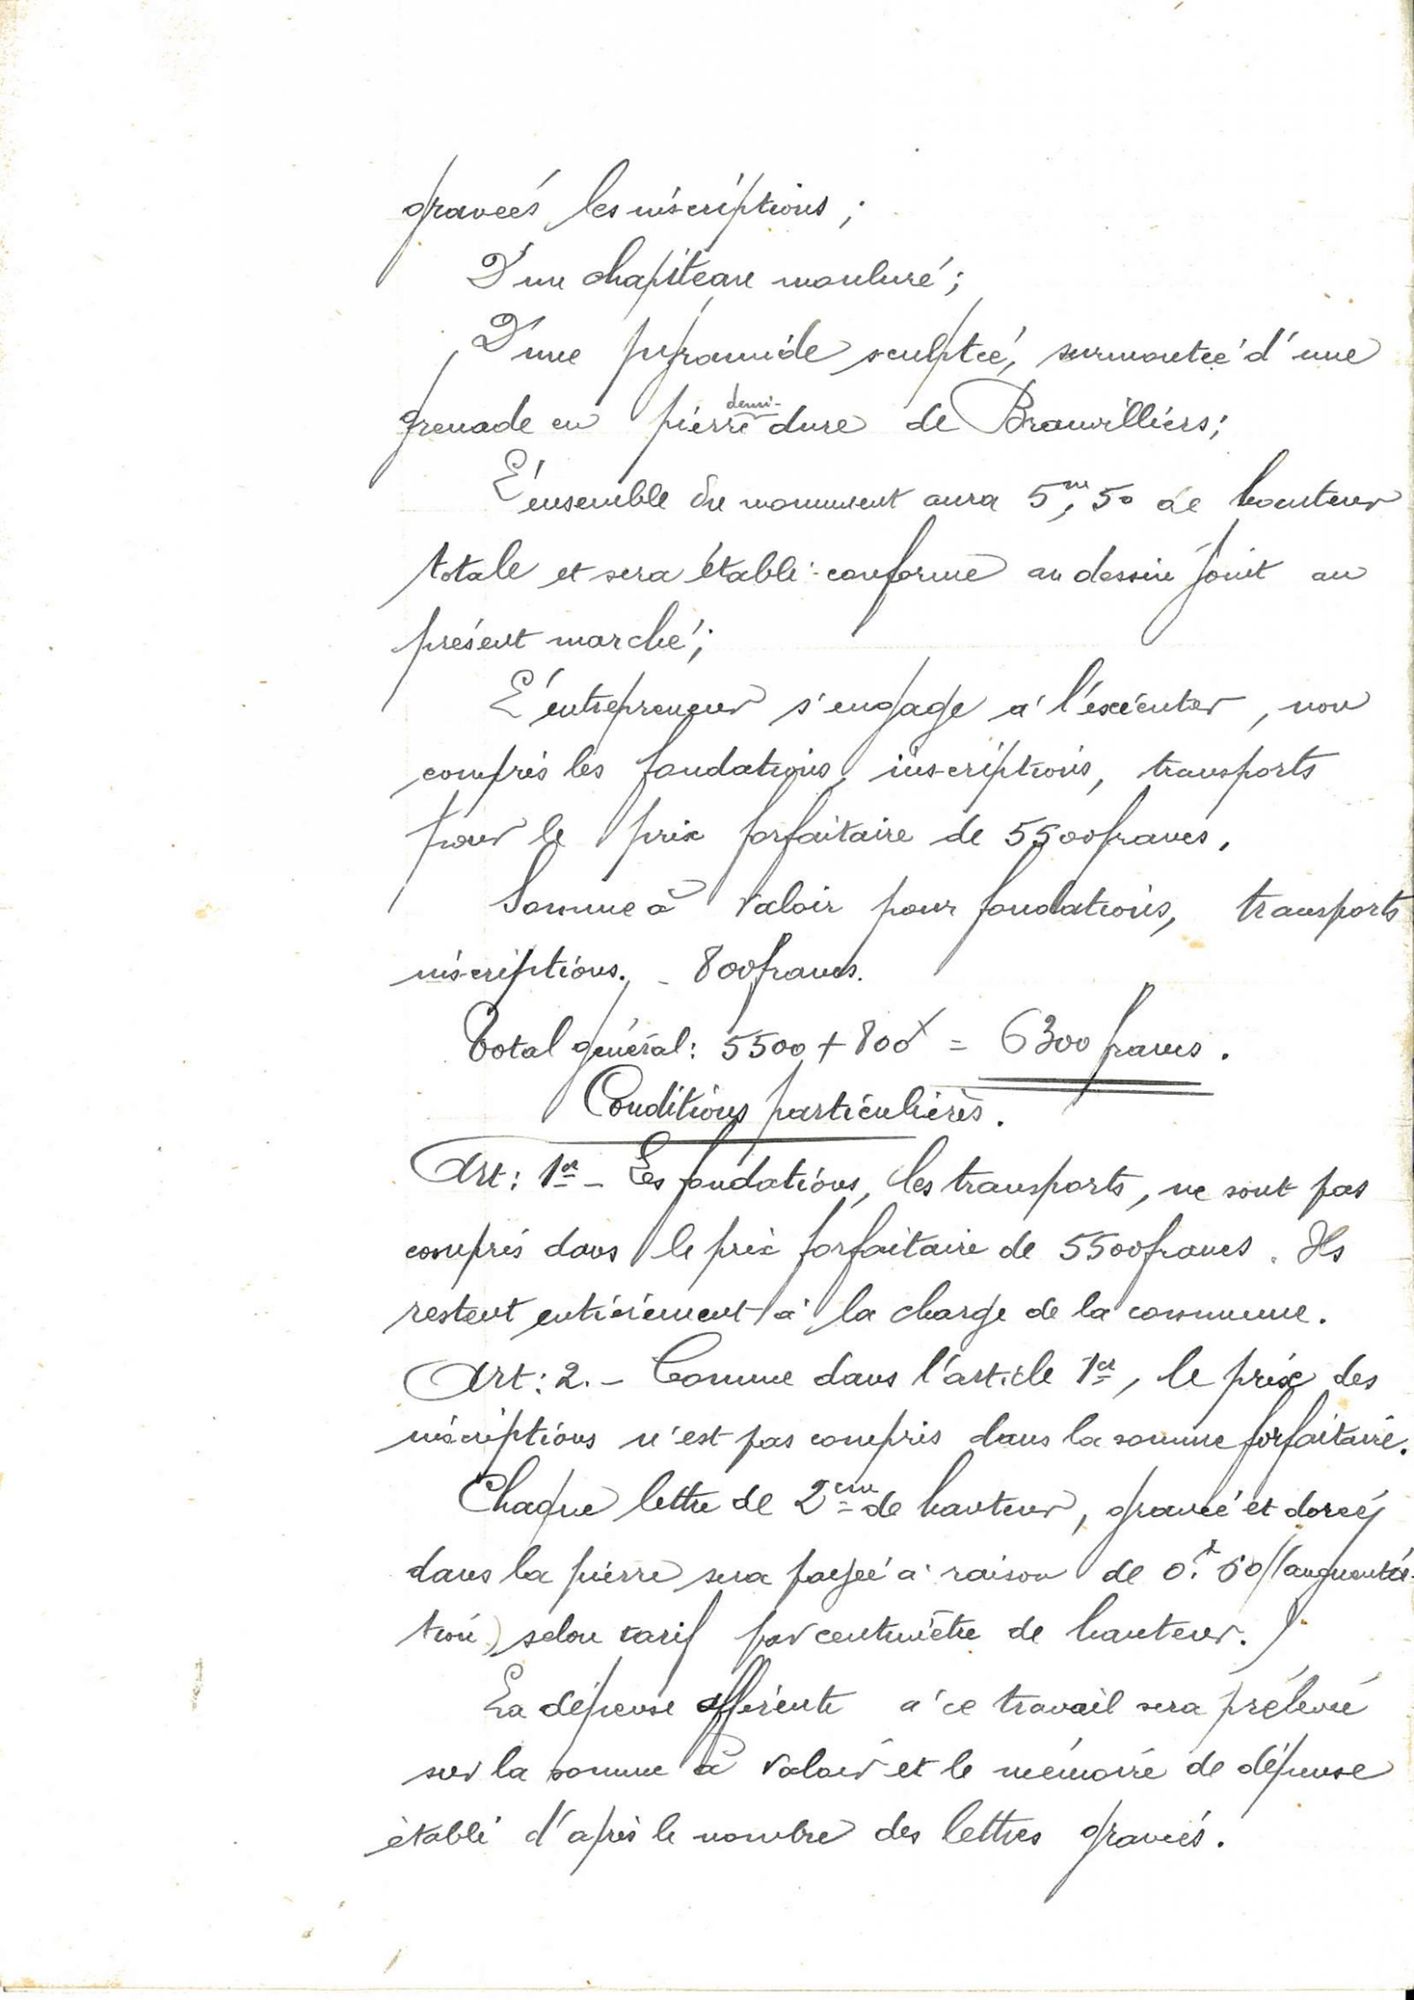 gravées les inscriptions ;
D'un chapiteau mouluré ;
D'une pyramide sculptée, surmontée d'une
demi-
grenade en pierre dure de Brauvilliers ;
L'ensemble du monument aura 5m,50 de hauteur
totale et sera établi conforme au dessin joint au
présent marché ;
L'entrepreneur s'engage à l'exécuter, non
compris les fondations, inscriptions, transports
pour le prix forfaitaire de 5500 francs.
Somme à valoir pour fondations, transports
inscriptions. - 800 francs.
Total général : 5500 + 800f = 6300 francs.
Conditions particulières.
Art : 1er - Les fondations, les transports, ne sont pas
compris dans le prix forfaitaire de 5500 francs. Ils
restent entièrement à la charge de la commune.
Art : 2. - Comme dans l'article 1er, le prix des
inscriptions n'est pas compris dans la somme forfaitaire.
Chaque lettre de 2cm de hauteur, gravée et dorée
dans la pierre sera payée à raison de 0f.50 (augmenta-
tion) selon tarif par centimètre de hauteur.)
La dépense afférente à ce travail sera prélevée
sur la somme à valoir et le mémoire de dépense
établi d'après le nombre des lettres gravées.